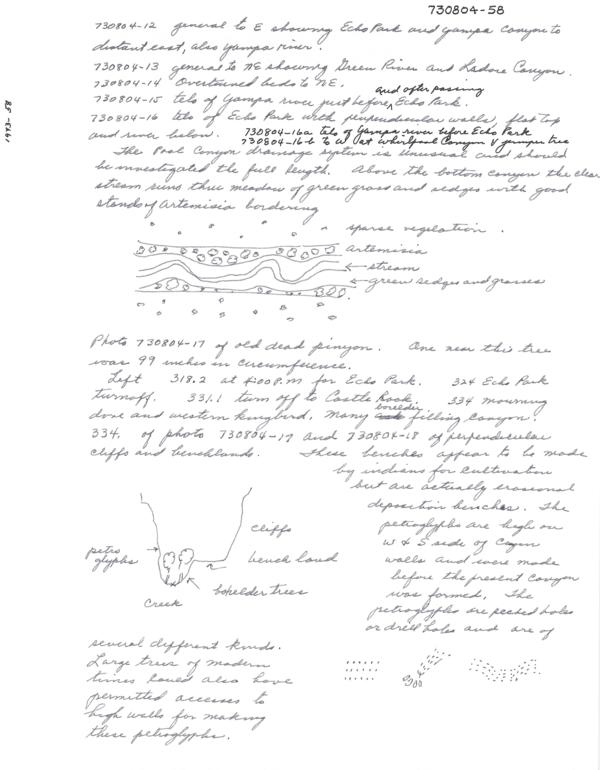 730804-58
730804-12 general to E showing Echo Park and Yampa Canyon to
distant east, also Yampa river.
730804-13 general to NE showing Green River and Ladore Canyon.
730804-14 Overturned beds to NE.
and after passing
730804-15 tele of Yampa river just before Echo Park.
730804-16 tele of Echo Park with perpendicular walls, flat top
and river below. 730804-16a tele of Yampa river before Echo Park
730804-16-b to W at whirlpool Canyon & juniper tree
The Pool Canyon drainage system is unusual and should
be investigated the full length. Above the bottom canyon the clear
stream runs thru meadow of green grass and sedges with good
stands of Artemisia bordering
sparse vegetation.
artemisia
stream
green sedges and grasses
Photo 730804-17 of old dead pinyon. One near this tree
was 99 inches in circumference.
Left 318.2 at 4:00 P.M for Echo Park. 324 Echo Park
turnoff. 331.1 turn off to Castle Rock. 334 mourning
dove and western kingbird. Many boxelder filling canyon.
334. of photo 730804-17 and 730804-18 of perpendicular
cliffs and benchlands. These benches appear to be made
by indians for cultivation
but are actually erosional
deposition benches. The
petroglyphs are high on
W & S side of
walls and were made
before the present Canyon
was formed. The
petroglyphs are pecked holes
or drill holes and are of
petro
glyphs
cliffs
bench land
boxelder trees
Creek
several different kinds.
Large trees of modern
times could also have
permitted accesses to
high walls for making
these petroglyphs.